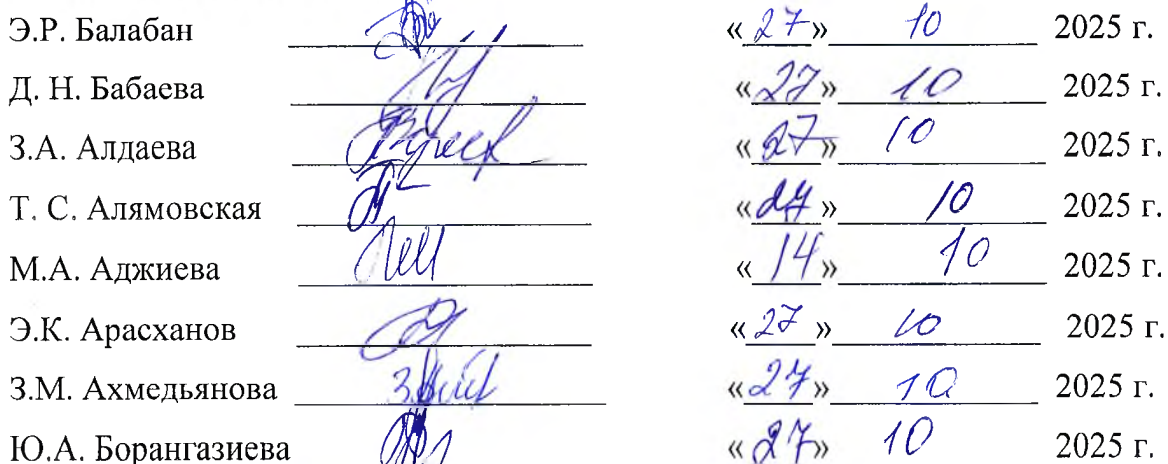 Э.Р. Балабан «27» 10 2025 г.
Д. Н. Бабаева «27» 10 2025 г.
З.А. Алдаева «27» 10 2025 г.
Т. С. Алямовская «27» 10 2025 г.
М.А. Аджиева «14» 10 2025 г.
Э.К. Арасханов «27» 10 2025 г.
З.М. Ахмедьянова «27» 10 2025 г.
Ю.А. Борангазиева «27» 10 2025 г.